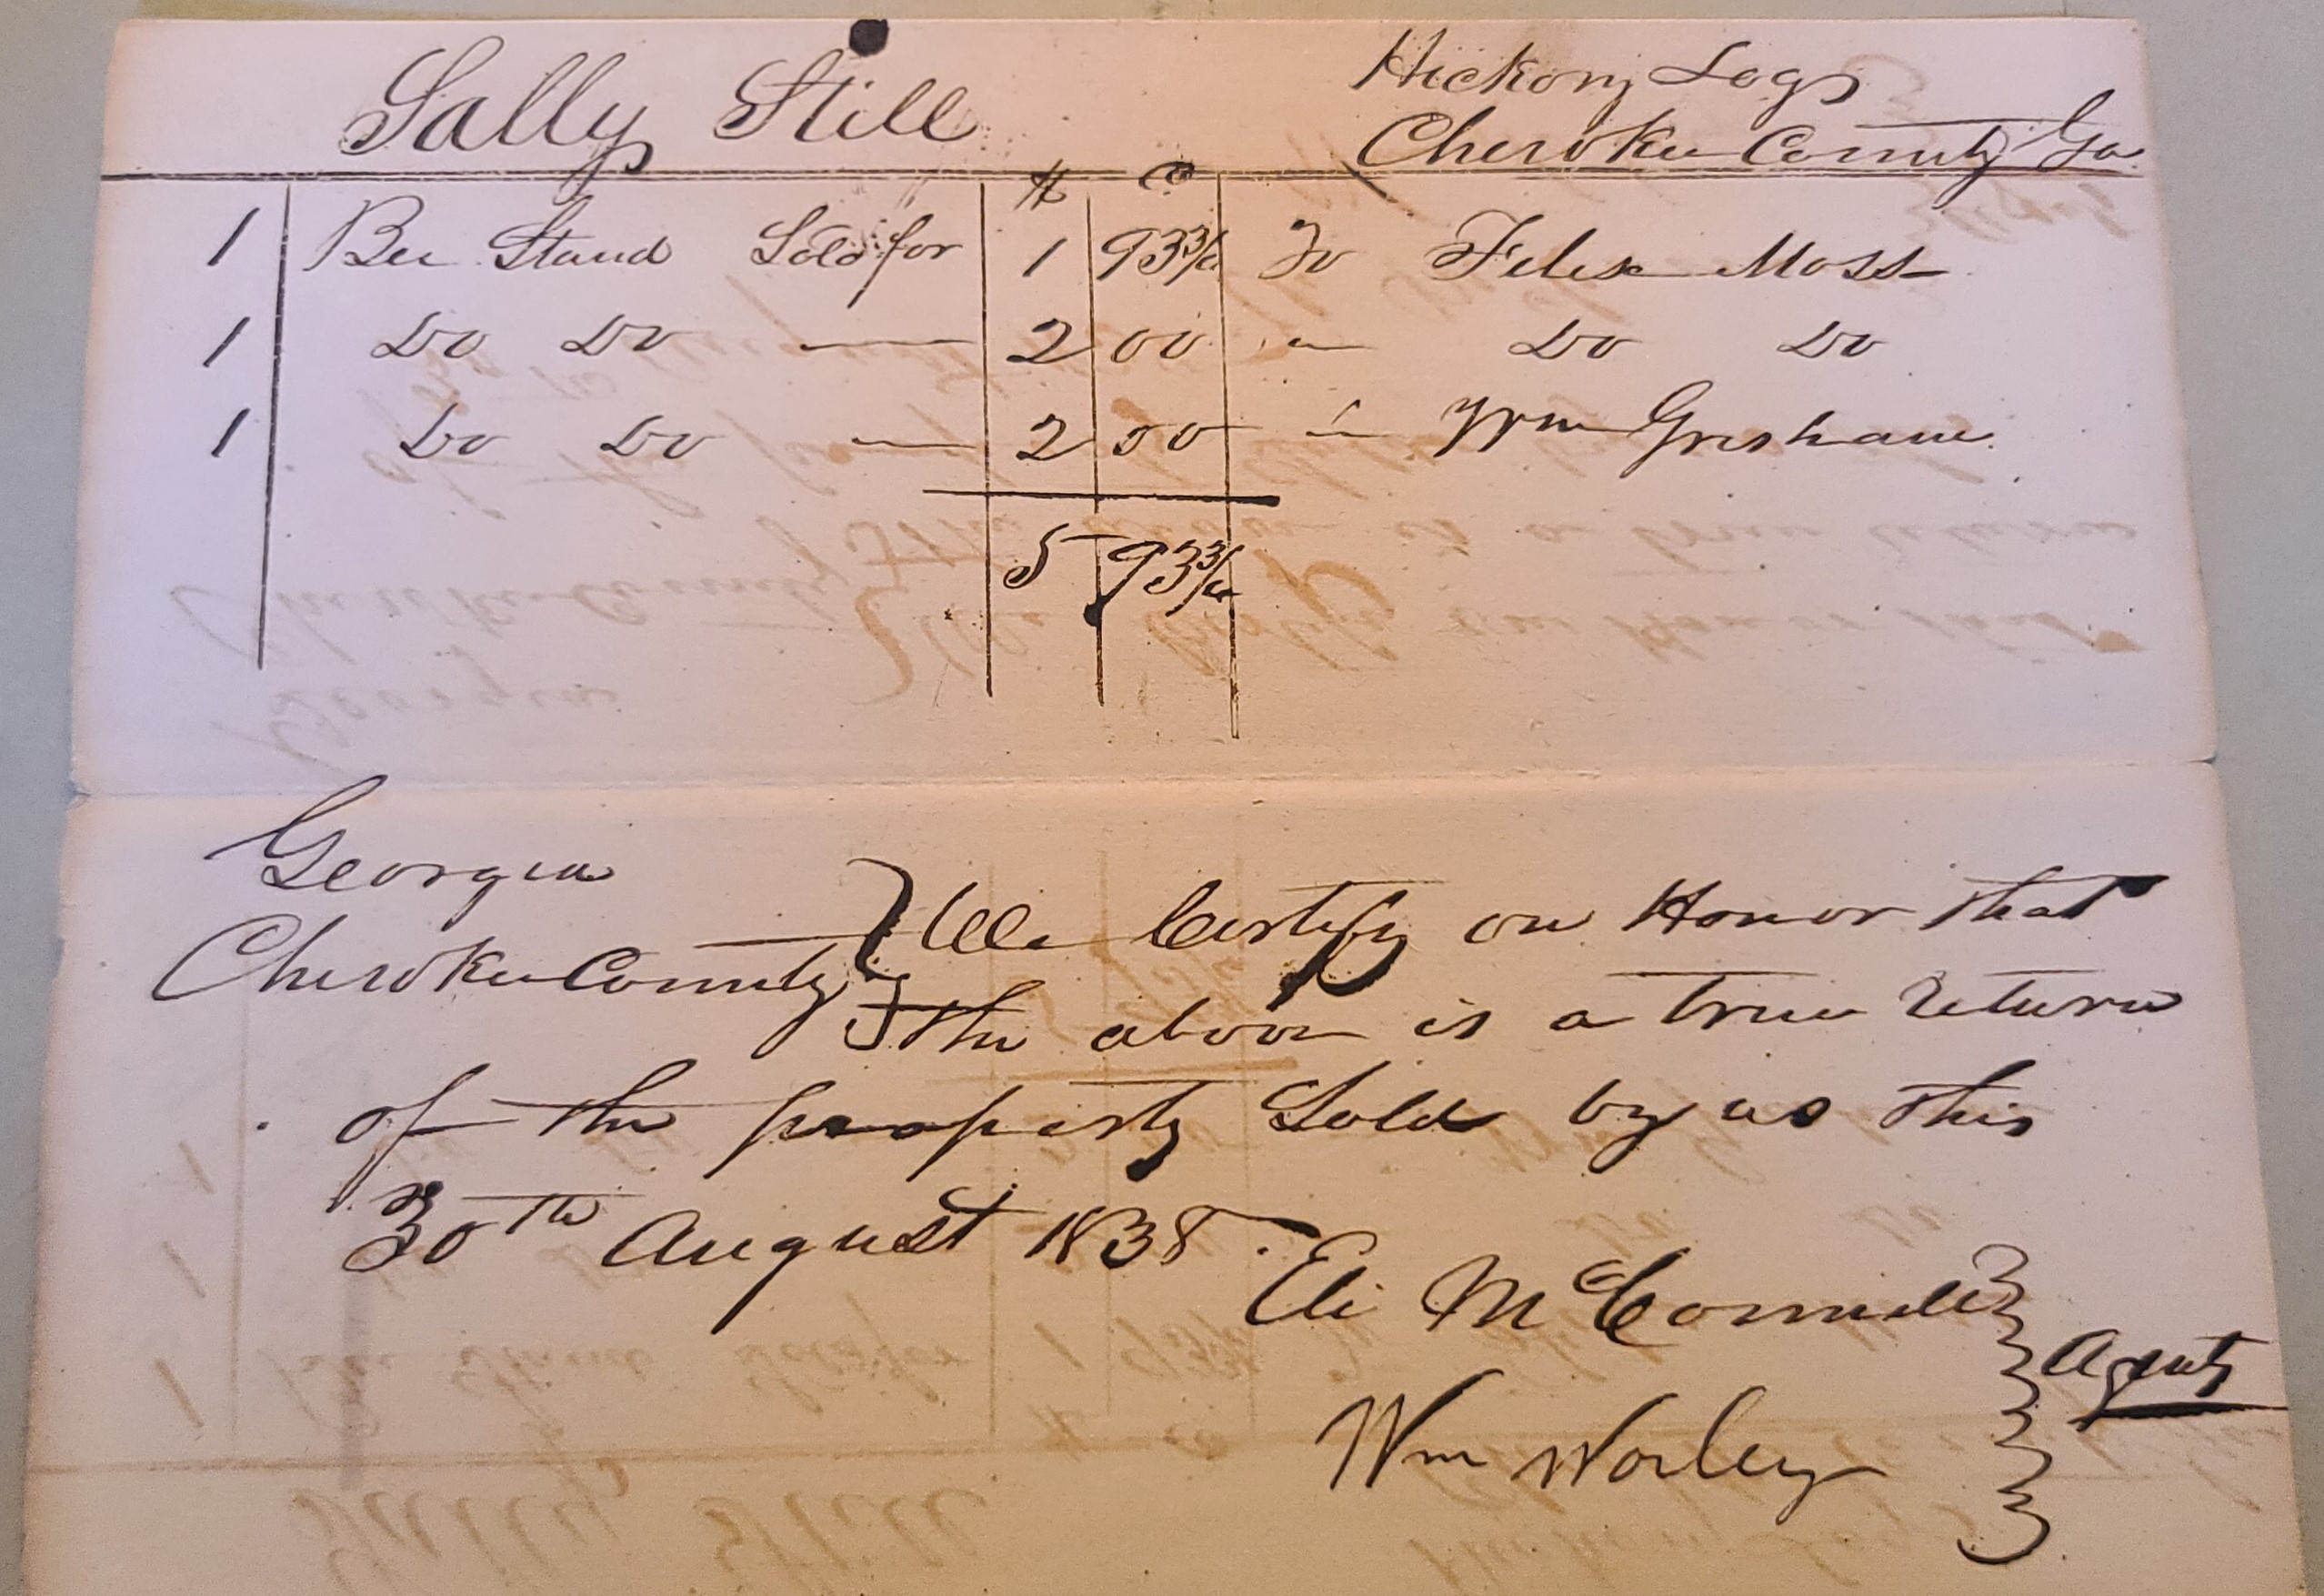 Sally Still
Hickory Logs
Cherokee County Ga
$ C
1 Bee Stand Sold for 1 93¾ To Felix Moss
1 Do Do — 2 00 " Do Do
1 Do Do — 2 00 " Wm Grisham
5 93¾
Georgia
Cherokee County } We Certify on Honor that
the above is a true return
of the property Sold by us this
30th August 1838.
Eli McConnell
Wm Worley } Agents